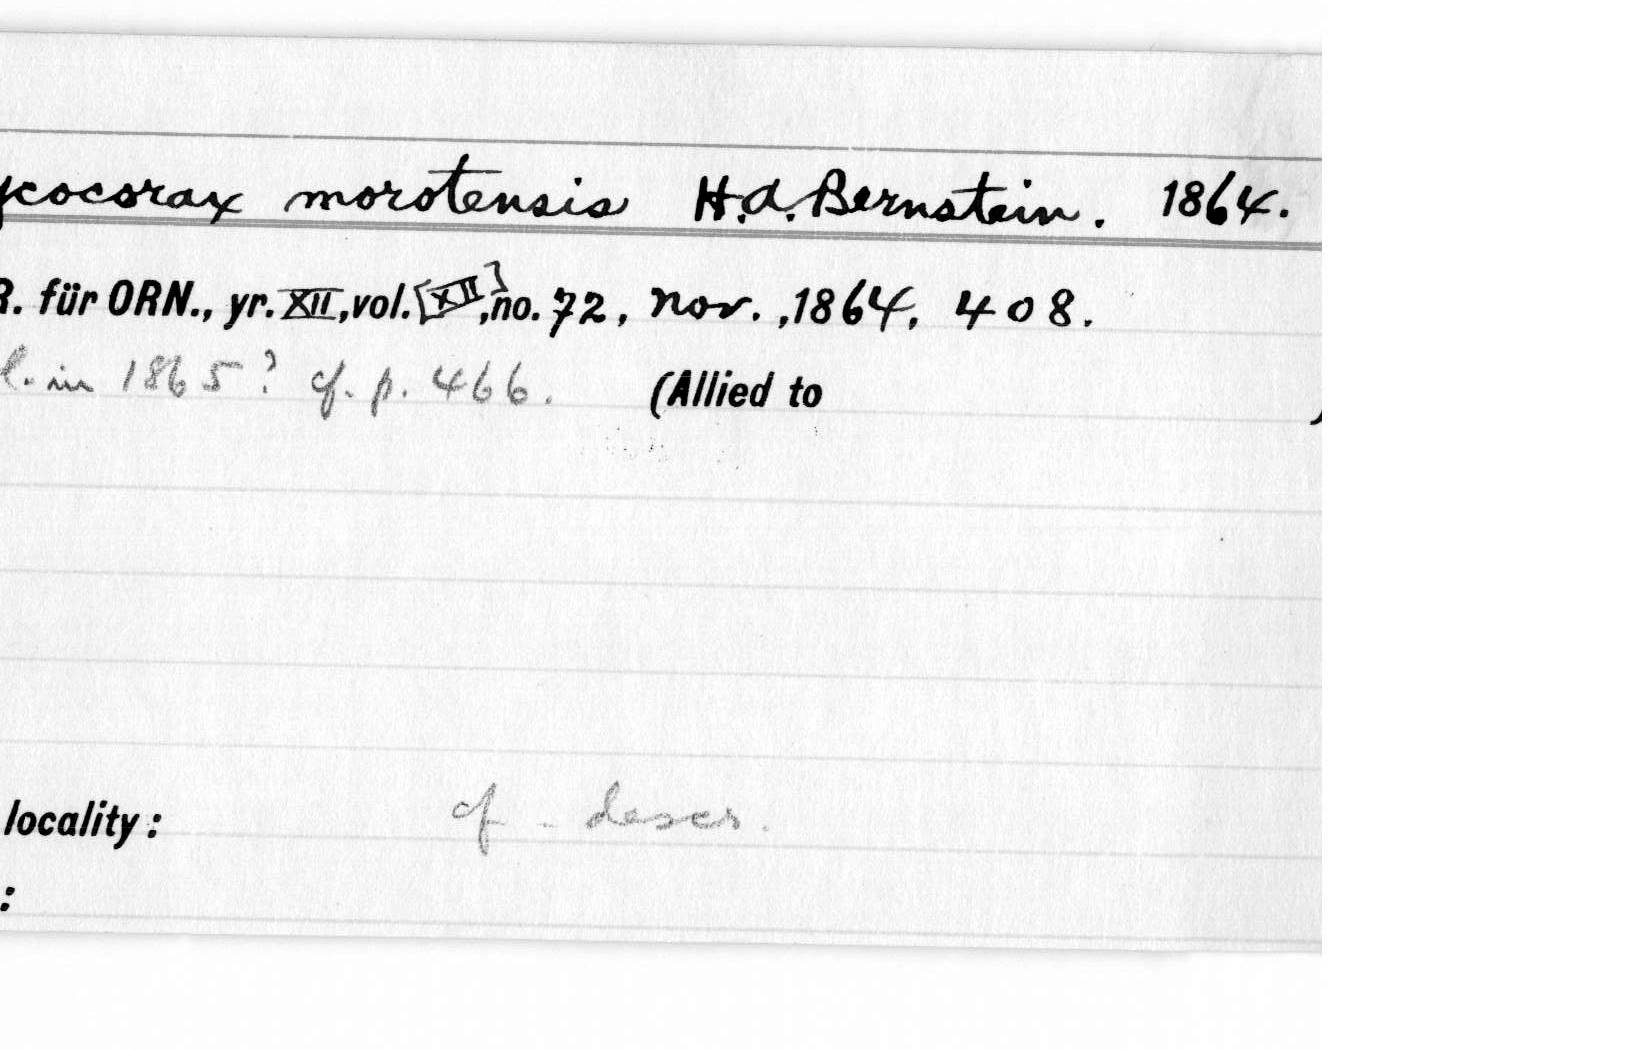 ycocorax morotensis H.A. Bernstein. 1864.
R. für ORN., yr. XII, vol. [XII], no. 72, Nov., 1864, 408.
l. in 1865? cf. p. 466. (Allied to )
locality: cf. descr.
: